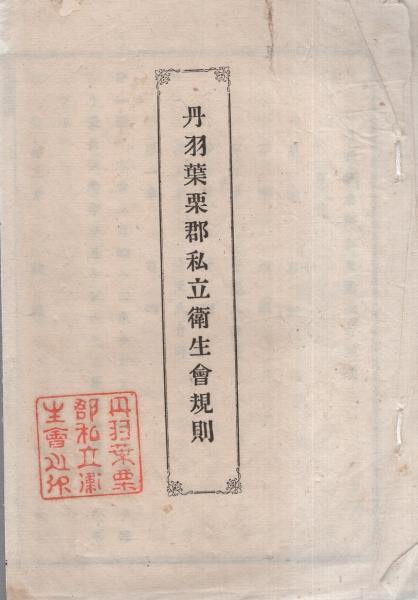 丹羽葉栗郡私立衛生會規則
丹羽葉栗
郡私立衛
生會之印